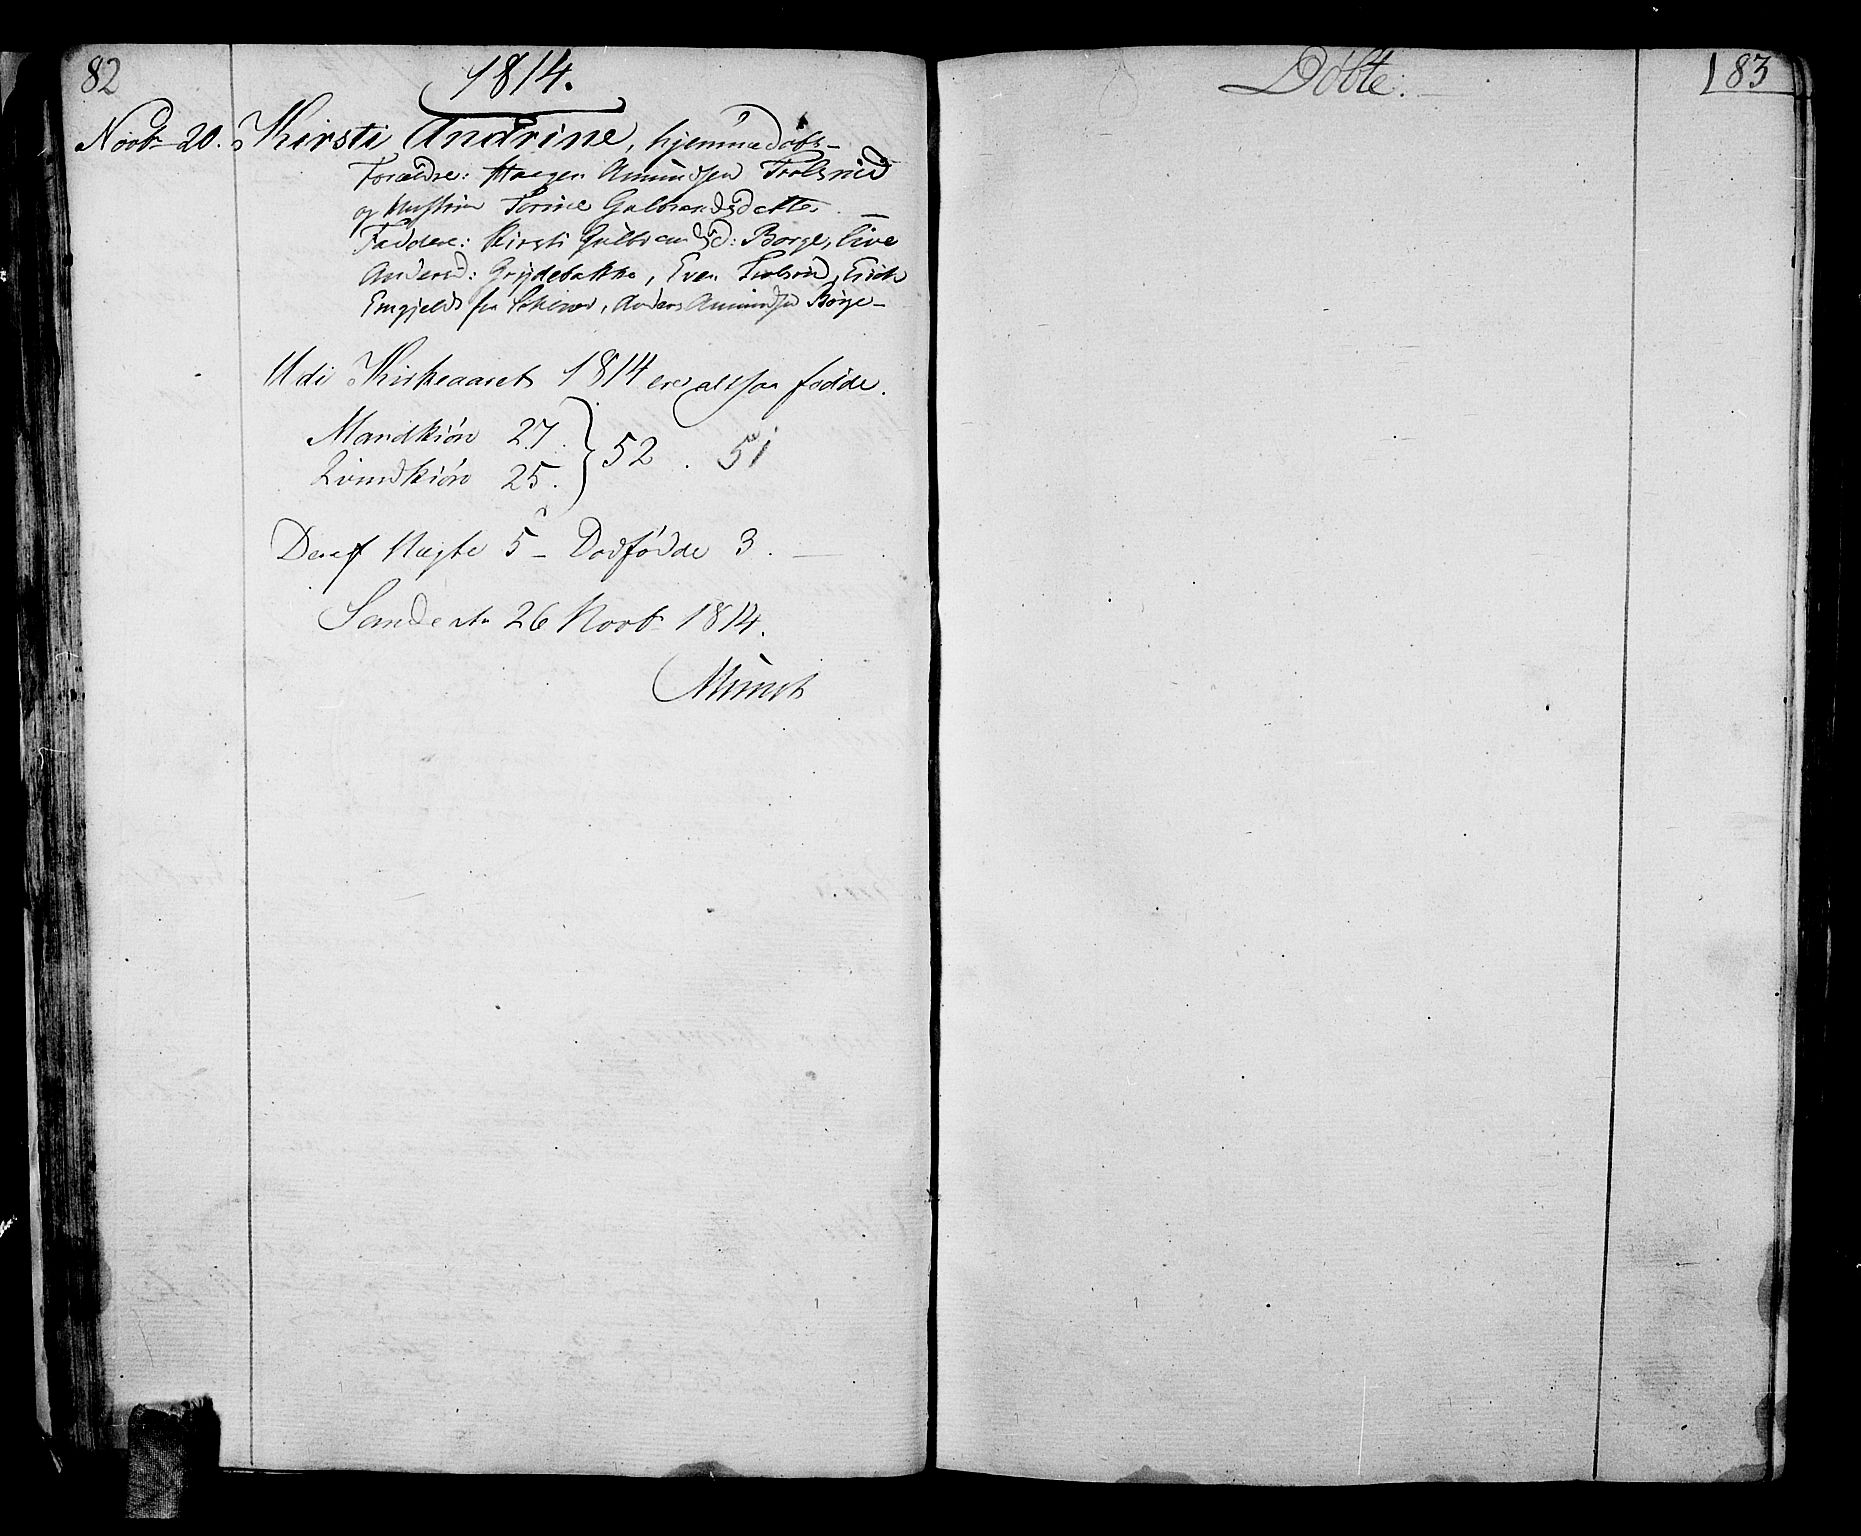 82
1814.
Novbr 20. Kirsti Andrine, hjemmedøbt
Forældre: Haagen Amundsen Trolsrud
og Hustrue Sørine Gulbrandsdatter. —
Faddere: Kirsti Gulbrandsd: Børge, Live
Andersd: Grydebakke, Even Trolsrud, Erich
Engjeld fra, Anders Amundsen Børge —
Udi Kirkeaaret 1814 ere altsaa fødde.
Mandkiøn 27.
52. 51
Qvindkiøn 25.
Deraf Uægte 5 — Dødfødde 3. —
Sande 26 Novbr 1814.
Munch
Døbte.
183